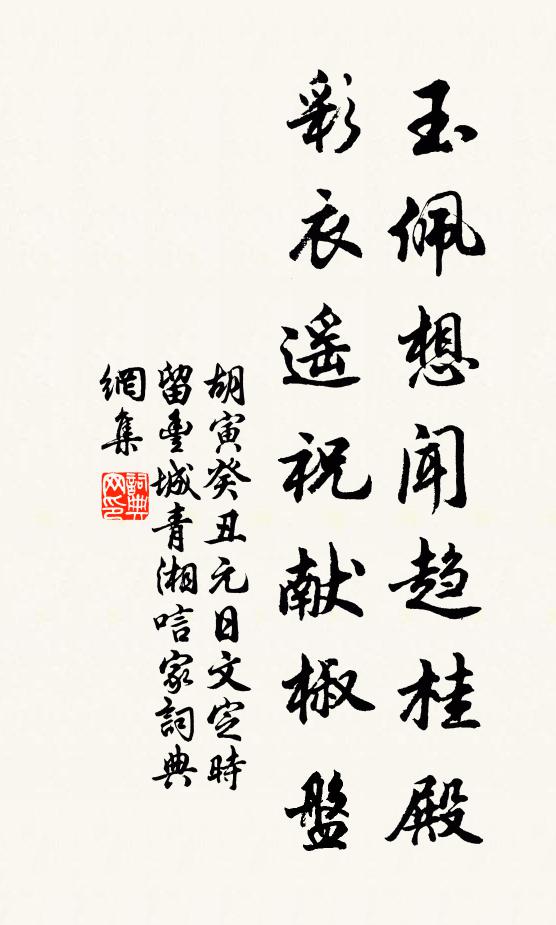 玉佩想闻趋桂殿
彩衣遥祝献椒盘
胡寅癸丑元日文定時
留豊城青湘唁家詞典
網集
詞典网印